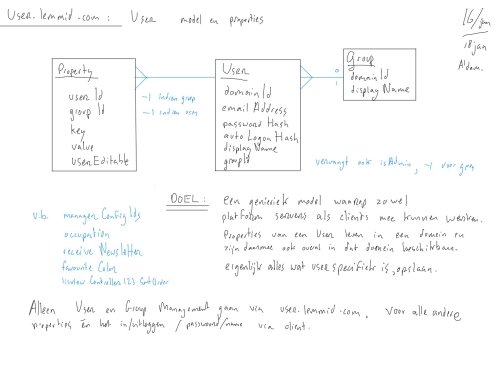 User.lemmid.com : User model en properties
16/jan
18 jan
A'dam.
Property
userId
groupId
key
value
userEditable
-1 indien groep
-1 indien user
User
domainId
emailAddress
passwordHash
autoLogonHash
displayName
groupId
0
1
Group
domainId
displayName
vervangt ook isAdmin, -1 voor geen
DOEL :
een generiek model waarop zowel
platform servers als clients mee kunnen werken.
Properties van een User leven in een domein en
zijn daarmee ook overal in dat domein beschikbaar.
eigenlijk alles wat user specifiek is, opslaan.
v.b. managerConfigIds
occupation
receive Newsletter
favourite Color
Alleen User en Group Management gaan via user.lemmid.com, voor alle andere
properties en het in/uitloggen / password/name via client.